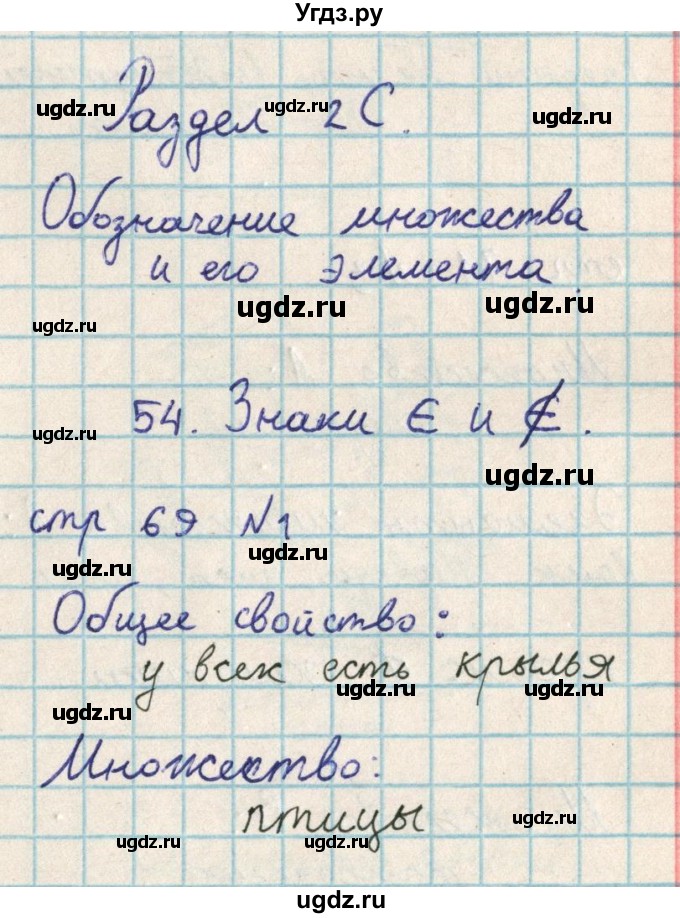 Угдз.ру
Раздел 2 С.
ugdz.ru ugdz.ru ugdz.ru
Обозначение множества
и его элемента
ugdz.ru ugdz.ru
ugdz.ru
54. Знаки ∈ и ∉.
ugdz.ru
ugdz.ru
стр 69 №1
ugdz.ru
ugdz.ru
Общее свойство:
у всех есть крылья
ugdz.ru ugdz.ru
ugdz.ru
Множество:
птицы
ugdz.ru
ugdz.ru ugdz.ru
ugdz.ru